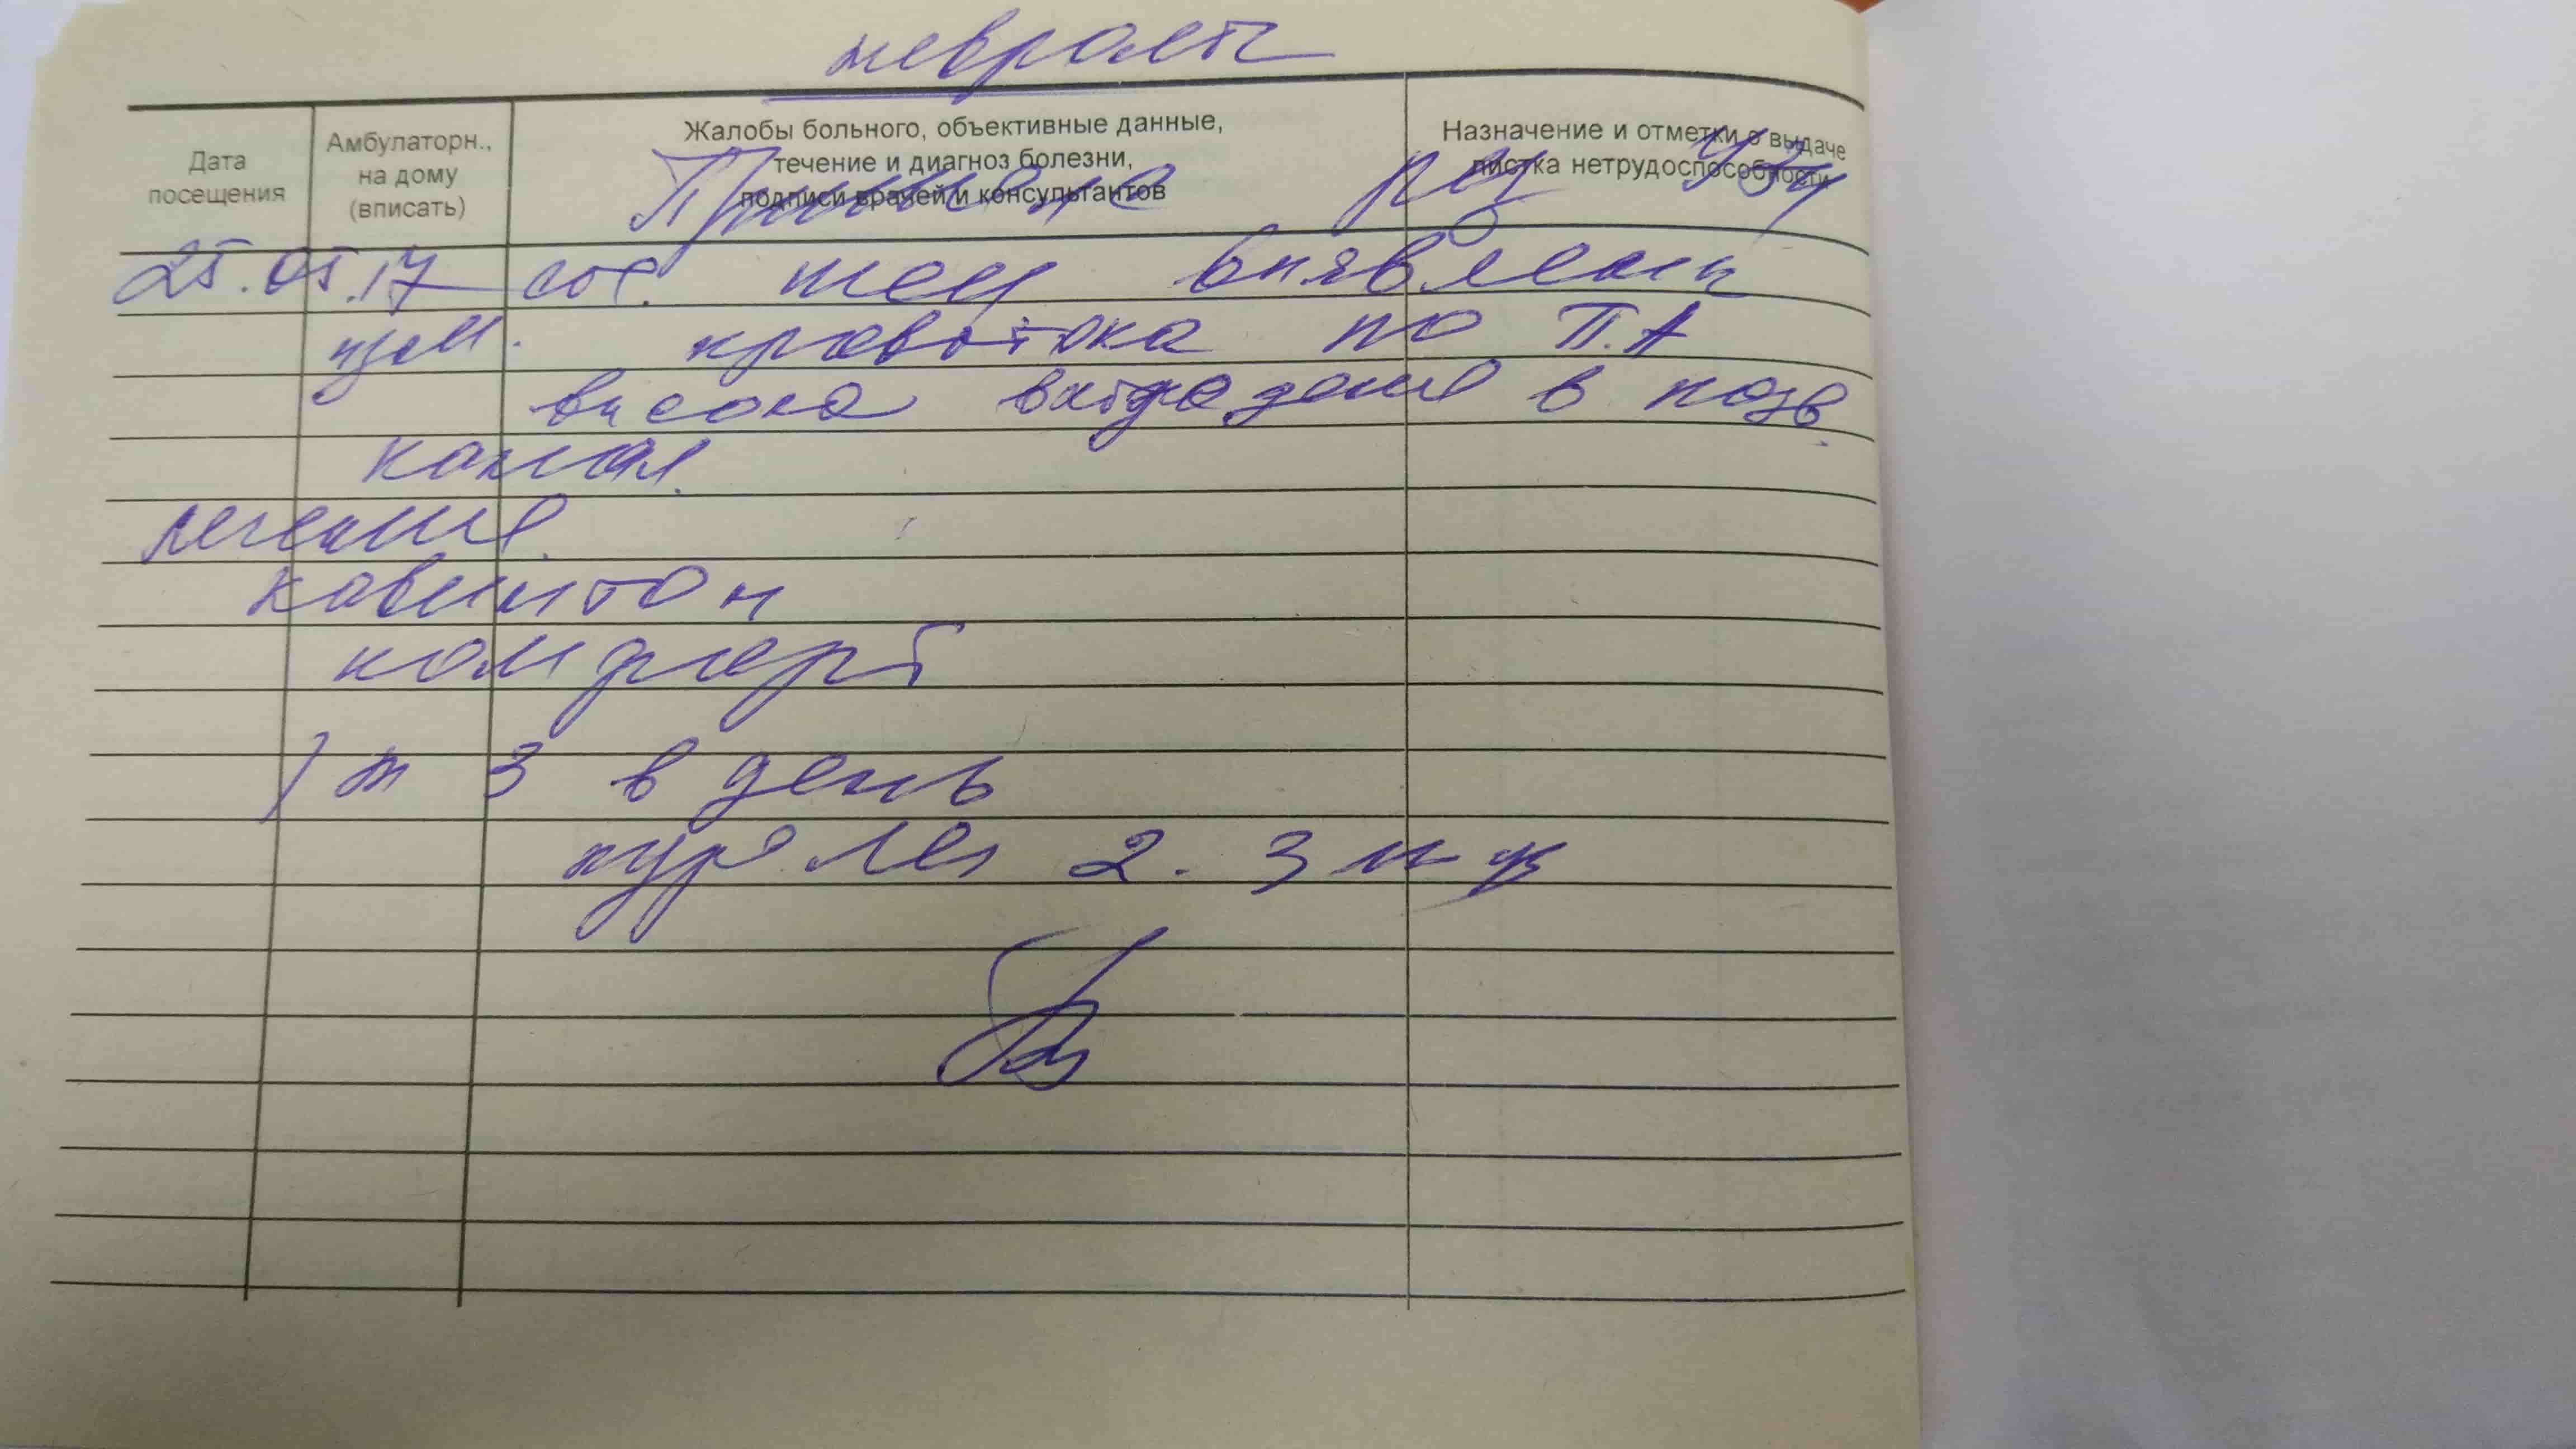 невролог
Дата посещения
Амбулаторн., на дому (вписать)
Жалобы больного, объективные данные,
течение и диагноз болезни,
подписи врачей и консультантов
Назначение и отметки о выдаче
листка нетрудоспособности
Принесла рез УЗИ
25.05.17 сос. шеи выявлены
изм. кровотока по П.А
высокое вхождение в позв.
канал.
лечение.
кавинтон
комфорте
1 т 3 в день
курс 2. 3